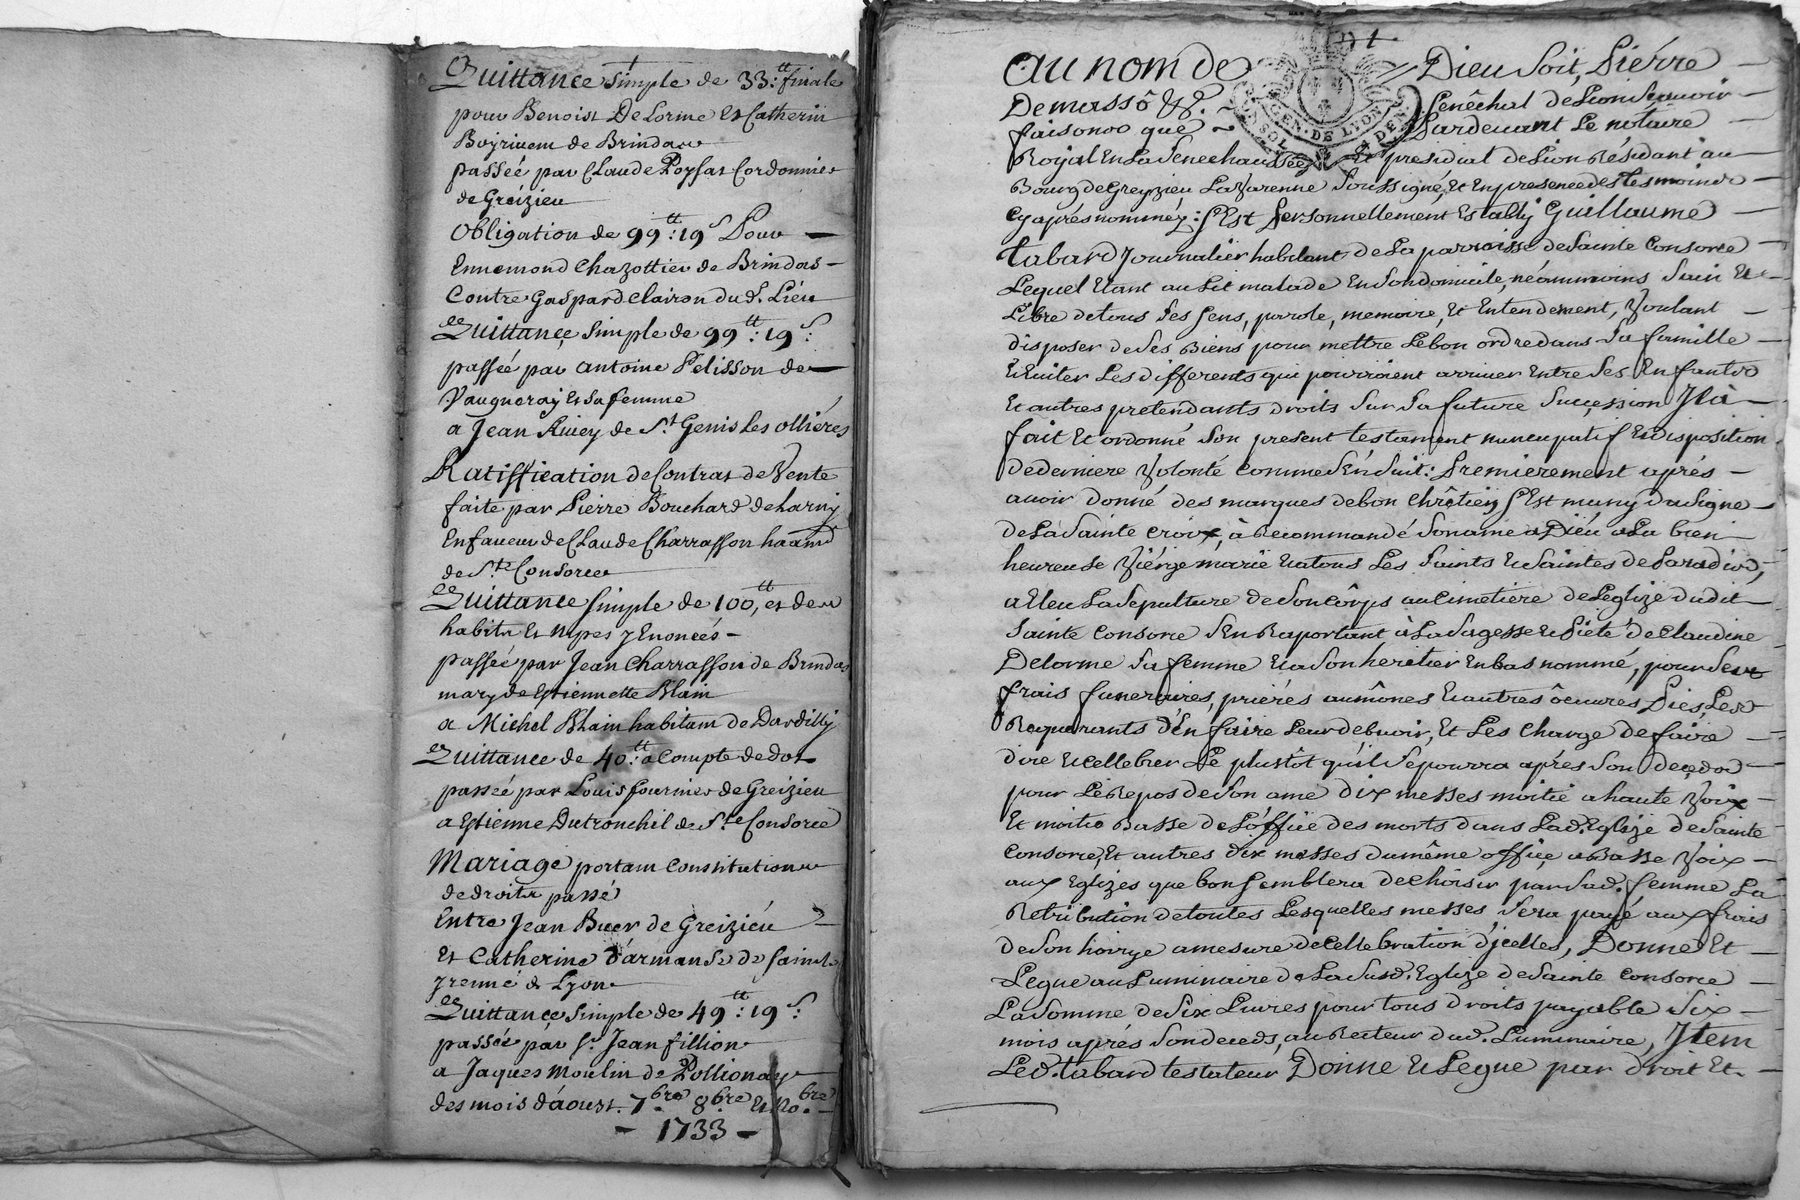 Quittance simple de 33:tt finale
pour Benoist De Lorme Et Catherin
Boyrivent de Brindas
passée par Claude Poyfat Cordonnier
de Gréizieu
Obligation de 99tt:19s Pour
Ennemond Chazottier de Brindas
Contre Gaspard Clairon dud. Liéu
Quittance simple de 99tt:19s:
passée par antoine Pelisson de
Vaugneray Et Sa femme
a Jean Rivey de St Genis Les ollières
Ratiffication de Contrat de Vente
faite par Pierre Bouchard de
En faveur de Claude Charrasson
de Ste Consorce
Quittance simple de 100tt, et de
habits Et nipes y Enoncés
passée par Jean Charrasson de Brindas
mary de Estiennette Blain
a Michel Blain habitant de Dardilly
Quittance de 40:tt a Compte de dot
passée par Louis fournier de Greizieu
a Estienne Dutronchil de Ste Consorce
Mariage portant Constitution
de droits passé
Entre Jean Buer de Greiziéu
Et Catherine d'armanse de saint
yrenné de Lyon
Quittance simple de 49tt:19s:
passée par Sr Jean fillion
a Jaques Moulin de Pollionay
des mois d'aoust. 7bre 8bre Et 9bre
- 1733 -
1
au nom de Dieu Soit, Pierre
De massô &c. Senêchal de Lion Scavoir
faisons que Pardevant Le notaire
Royal En La Senechaussée Et presidial de Lion Résidant au
Bourg de Greyzieu Lavarenne Soussigné, Et En presence des tesmoins
Cy aprés nommez: S'Est Personnellement Estably Guillaume
tabard Journalier habitant de La parroisse de Sainte Consorce
Lequel Etant au Lit malade En Son domicile, néanmoins Sain Et
Libre de tous Ses Sens, parole, memoire, Et Entendement, Voulant
disposer de Ses Biens pour mettre Le bon ordre dans Sa famille
Et Eviter Les differents qui pourroient arriver Entre Ses Enfants
Et autres pretendants droits Sur Sa future Succession Il à
fait Et ordonné Son present testament nuncupatif Et disposition
de derniere Volonté Comme S'En Suit: Premierement aprés
avoir donné des marques de bon Chrêtien S'Est muny du Signe
de La Sainte Croix, à Recommandé Son ame a Diéu a La bien
heureuse Viérge marie Et a tous Les Saints Et Saintes de Paradis,
a Eleu La Sepulture de Son Côrps au Cimetiere de L'eglize dudit
Sainte Consorce S'En Raportant à La Sagesse Et Piété de Claudine
Delorme Sa femme Et a Son heretier En bas nommé, pour Ses
frais funeraires, priérés aumônes Et autres ôeuvres Pies, Les
Requerants d'En faire Leur debvoir, Et Les Charge de faire
dire Et Cellebrer Le plustôt qu'il Se pourra aprés Son deçéds
pour Le Repos de Son ame dix messes moitié a haute Voix
Et moitié Basse de L'office des morts dans Lad. Eglize de Sainte
Consorce, Et autres dix messes du même office a Basse Voix
aux Eglizes que bon Semblera de Choisir par Sad. femme La
Retribution de toutes Lesquelles messes Sera payé aux frais
de Son hoirye a mesure de Cellebration d'jcelles, Donne Et
Legue au Luminaire de La Susd. Eglize de Sainte Consorce
La Somme de Six Livres pour tous droits payable Six
mois aprés Son deceds, au Recteur dud. Luminaire, Item
Led. tabard testateur Donne Et Legue par droit Et